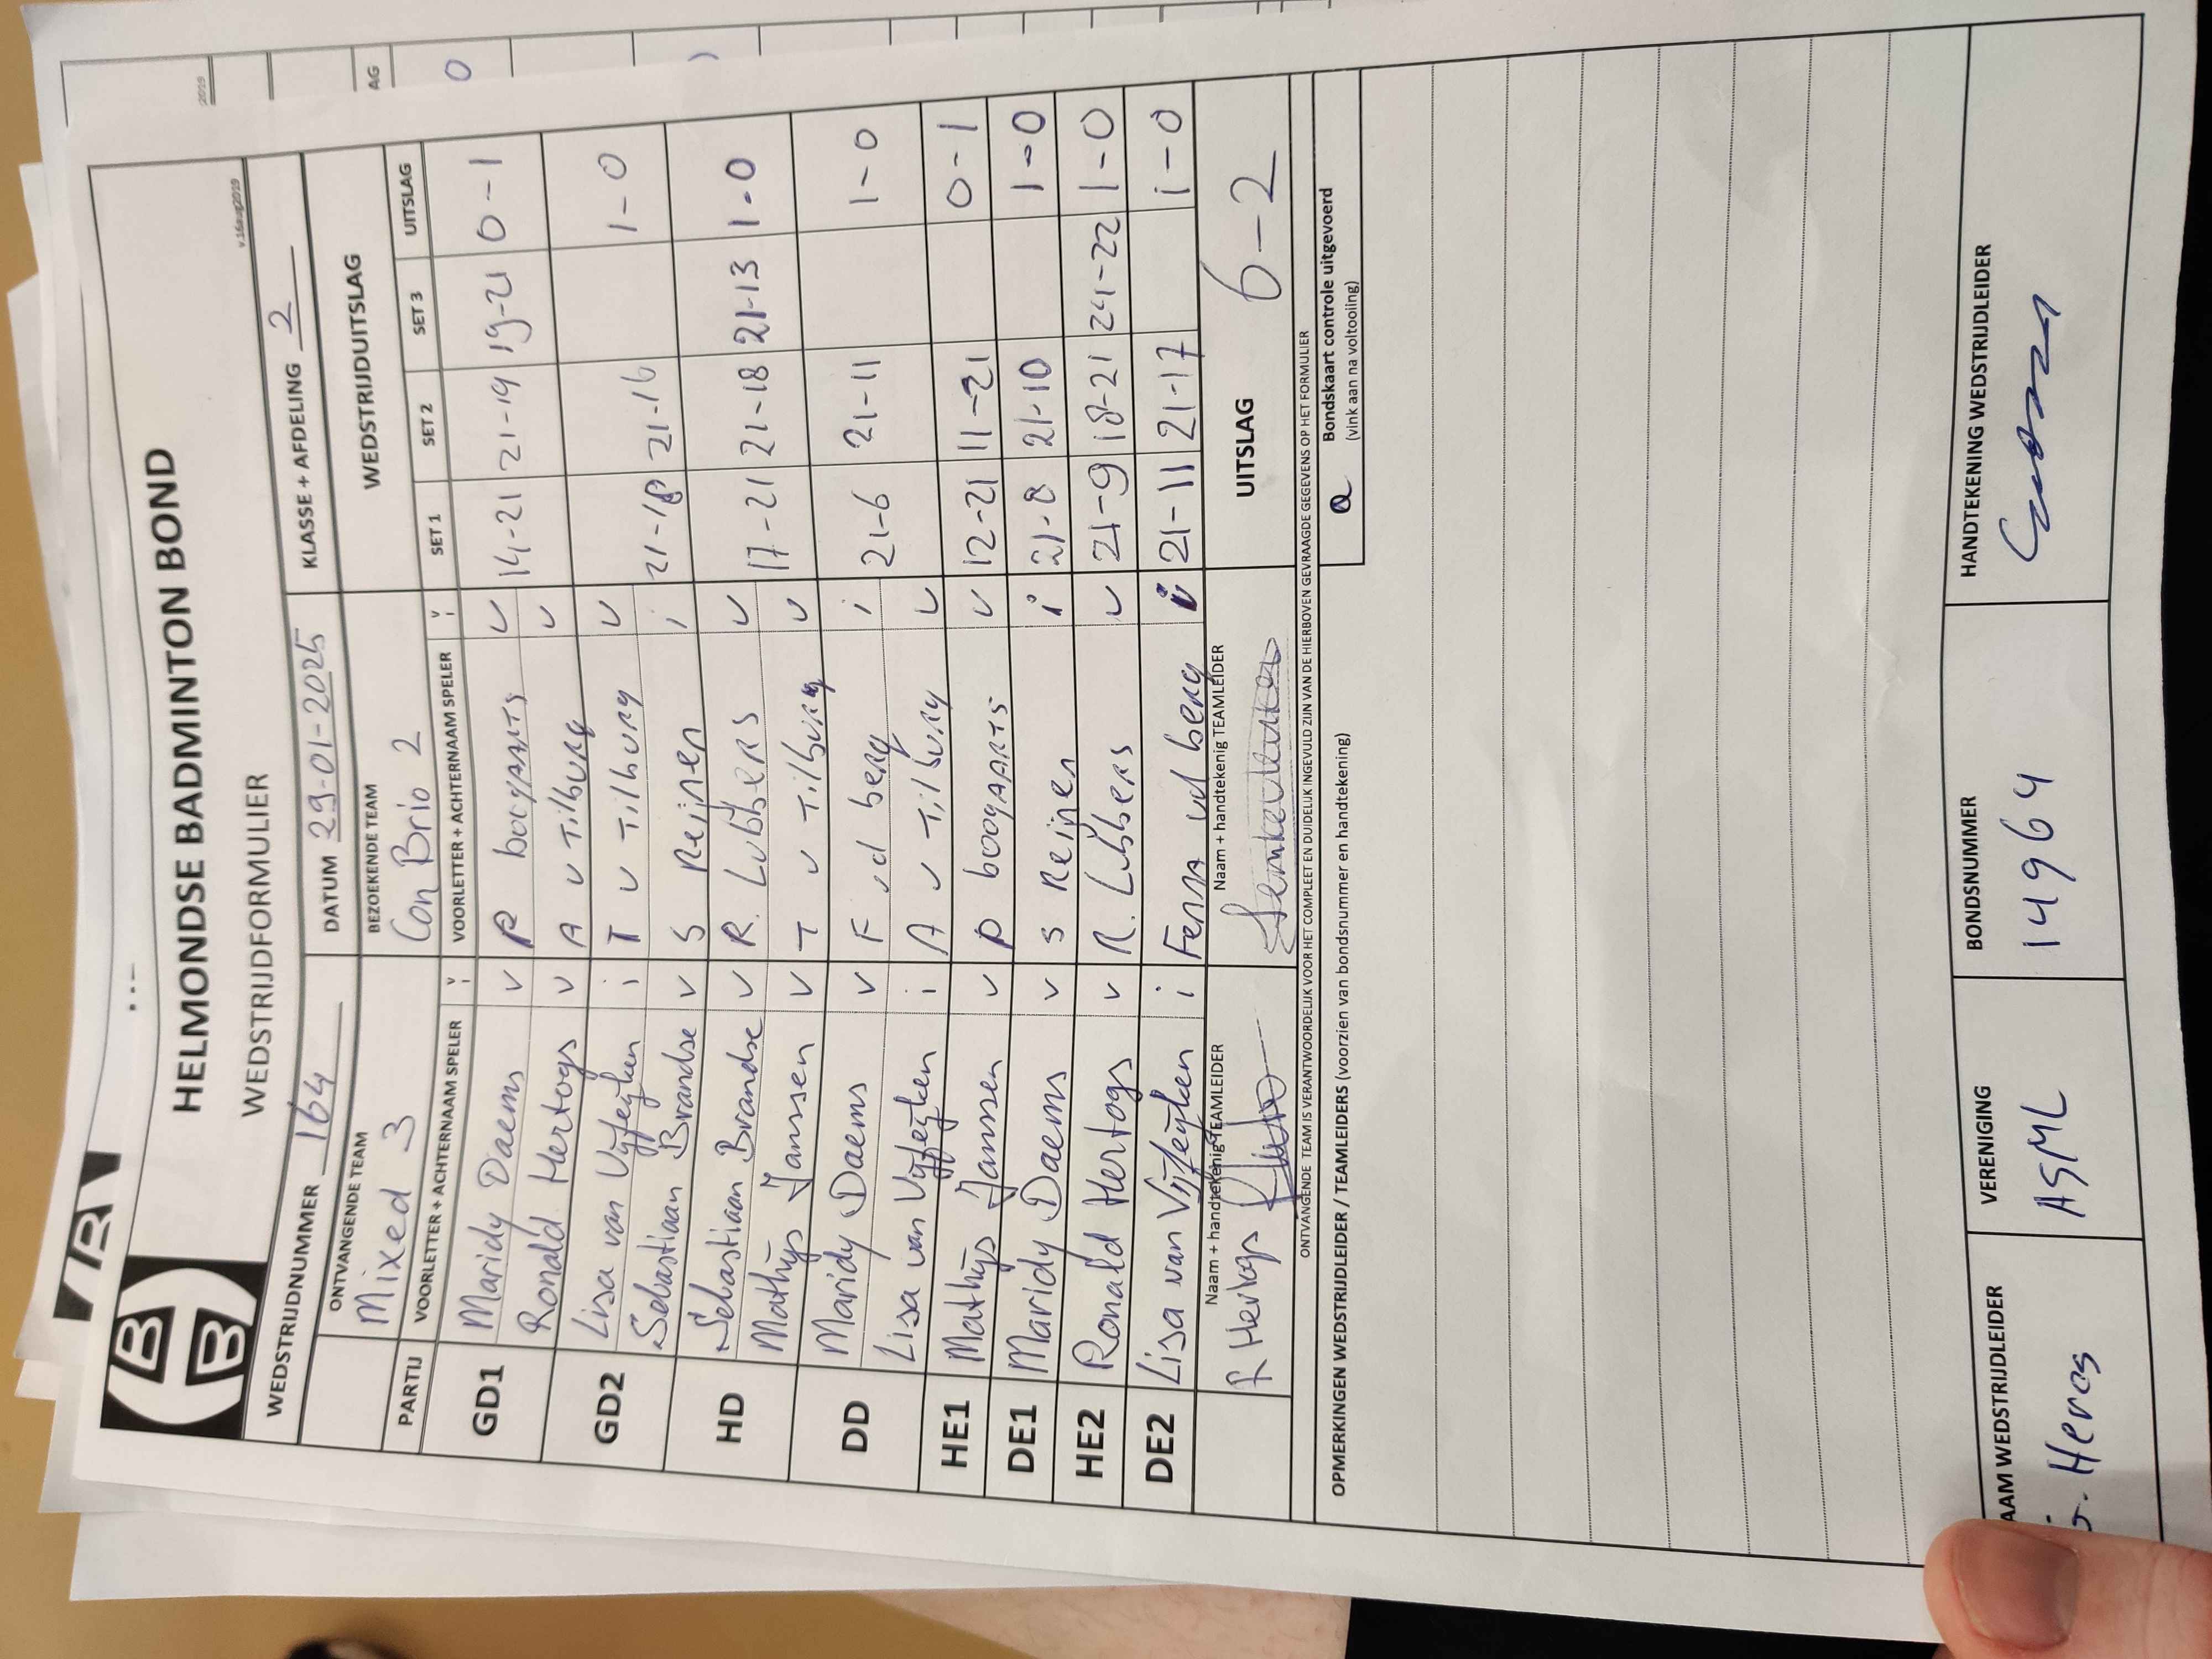 HELMONDSE BADMINTON BOND
WEDSTRIJDFORMULIER
v.16aug2019
WEDSTRIJDNUMMER 164 DATUM 29-01-2025 KLASSE + AFDELING 2
ONTVANGENDE TEAM BEZOEKENDE TEAM WEDSTRIJDUITSLAG
Mixed 3 Con Brio 2
PARTIJ VOORLETTER + ACHTERNAAM SPELER v i VOORLETTER + ACHTERNAAM SPELER v i SET 1 SET 2 SET 3 UITSLAG
GD1 Maridy Daems v R boogaarts v 14-21 21-19 19-21 0-1
Ronald Hertogs v A v Tilburg v
GD2 Lisa van Vijfeijken i T v Tilburg v 1-0
Sebastiaan Brandse v S Reijnen i 21-18 21-16
HD Sebastiaan Brandse v R. Lubbers v
Mathijs Janssen v T v Tilburg v 17-21 21-18 21-13 1-0
DD Maridy Daems v F vd berg i
Lisa van Vijfeijken i A v Tilburg v 21-6 21-11 1-0
HE1 Mathijs Janssen v P boogaarts v 12-21 11-21 0-1
DE1 Maridy Daems v S Reijnen i 21-8 21-10 1-0
HE2 Ronald Hertogs v R. Lubbers v 21-9 18-21 24-22 1-0
DE2 Lisa van Vijfeijken i Fenna vd berg i 21-11 21-17 1-0
Naam + handtekenig TEAMLEIDER Naam + handtekenig TEAMLEIDER UITSLAG 6-2
R Hertogs
ONTVANGENDE TEAM IS VERANTWOORDELIJK VOOR HET COMPLEET EN DUIDELIJK INGEVULD ZIJN VAN DE HIERBOVEN GEVRAAGDE GEGEVENS OP HET FORMULIER
OPMERKINGEN WEDSTRIJDLEIDER / TEAMLEIDERS (voorzien van bondsnummer en handtekening)
Bondskaart controle uitgevoerd
(vink aan na voltooiing)
AAM WEDSTRIJDLEIDER VERENIGING BONDSNUMMER HANDTEKENING WEDSTRIJDLEIDER
Heras ASML 14964
2019
AG
0